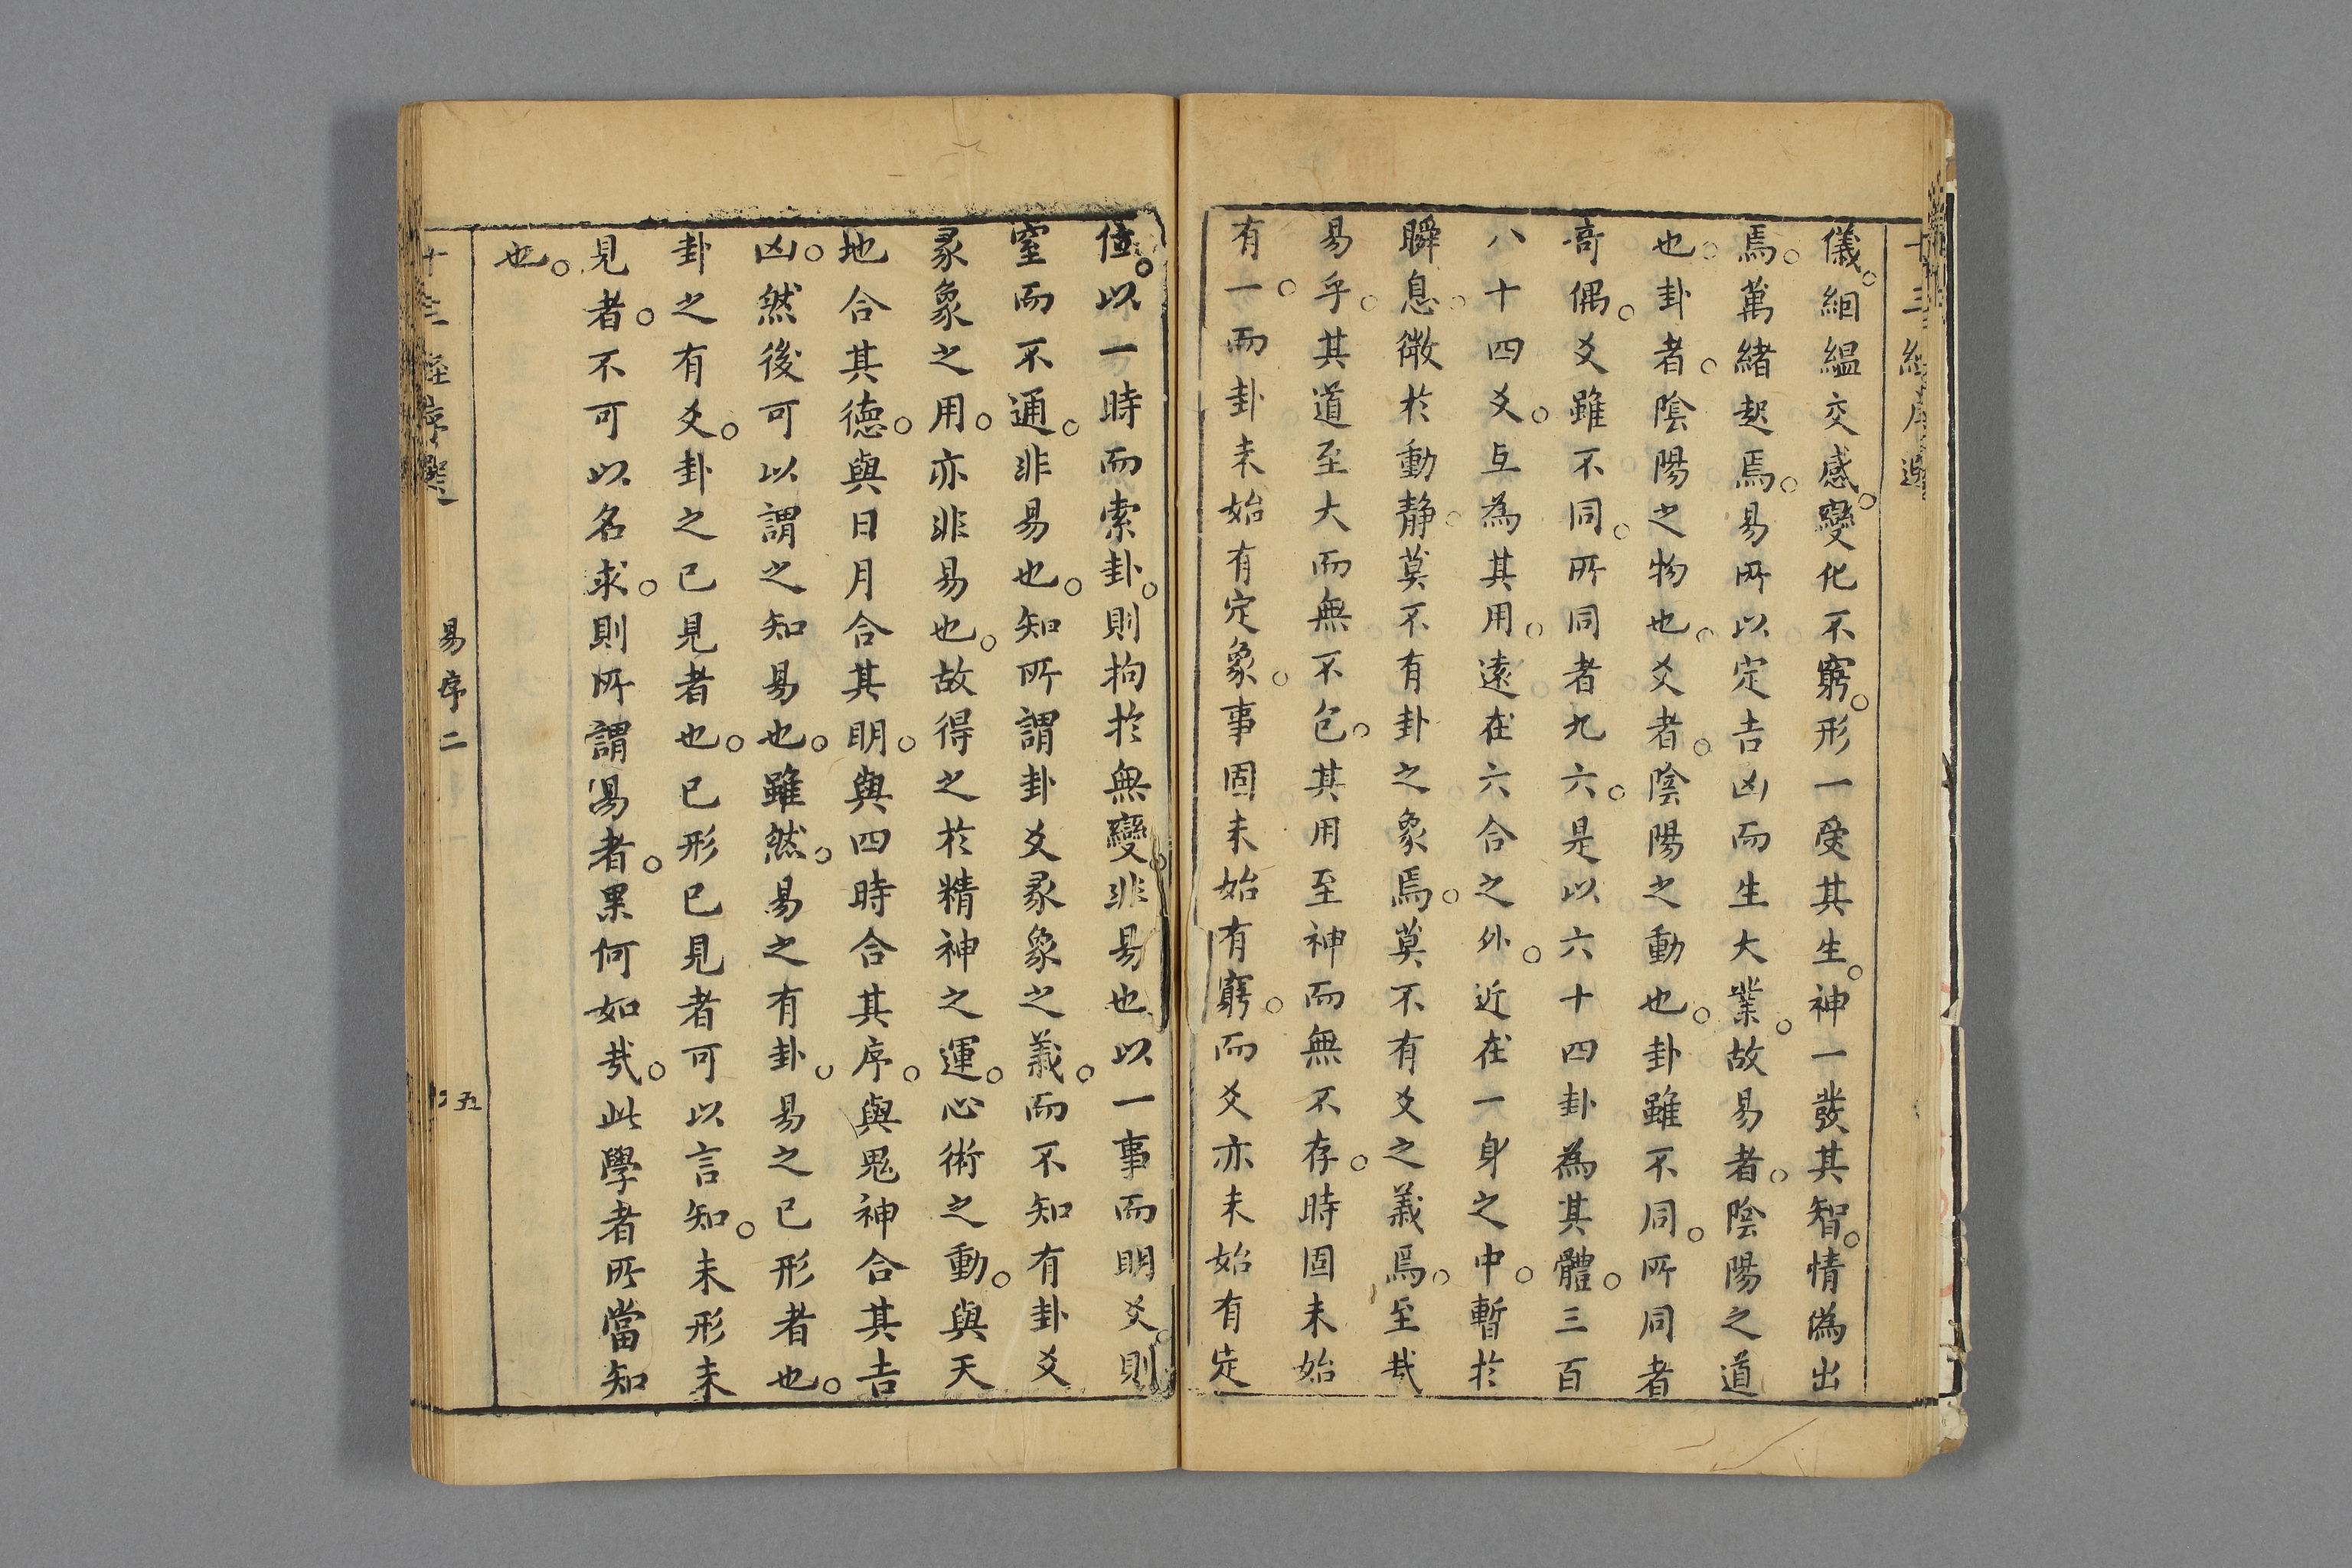 儀。絪緼交感。變化不窮。形一受其生。神一發其智。情偽出
焉。萬緒起焉。易所以定吉凶而生大業。故易者。陰陽之道
也。卦者。陰陽之物也。爻者。陰陽之動也。卦雖不同。所同者
竒偶。爻雖不同。所同者九六。是以六十四卦為其體。三百
八十四爻。互為其用。遠在六合之外。近在一身之中。暫於
瞬息。微於動静。莫不有卦之象焉。莫不有爻之義焉。至哉
易乎。其道至大而無不包。其用至神而無不存。時固未始
有一。而卦未始有定象。事固未始有窮。而爻亦未始有定
位。以一時而索卦。則拘於無變。非易也。以一事而明爻。則
窒而不通。非易也。知所謂卦爻彖象之義。而不知有卦爻
彖象之用。亦非易也。故得之於精神之運。心術之動。與天
地合其德。與日月合其明。與四時合其序。與鬼神合其吉
凶。然後可以謂之知易也。雖然。易之有卦。易之已形者也。
卦之有爻。卦之已見者也。已形已見者可以言知。未形未
見者。不可以名求。則所謂易者。果何如哉。此學者所當知
也。
十三經序選
易序二
五